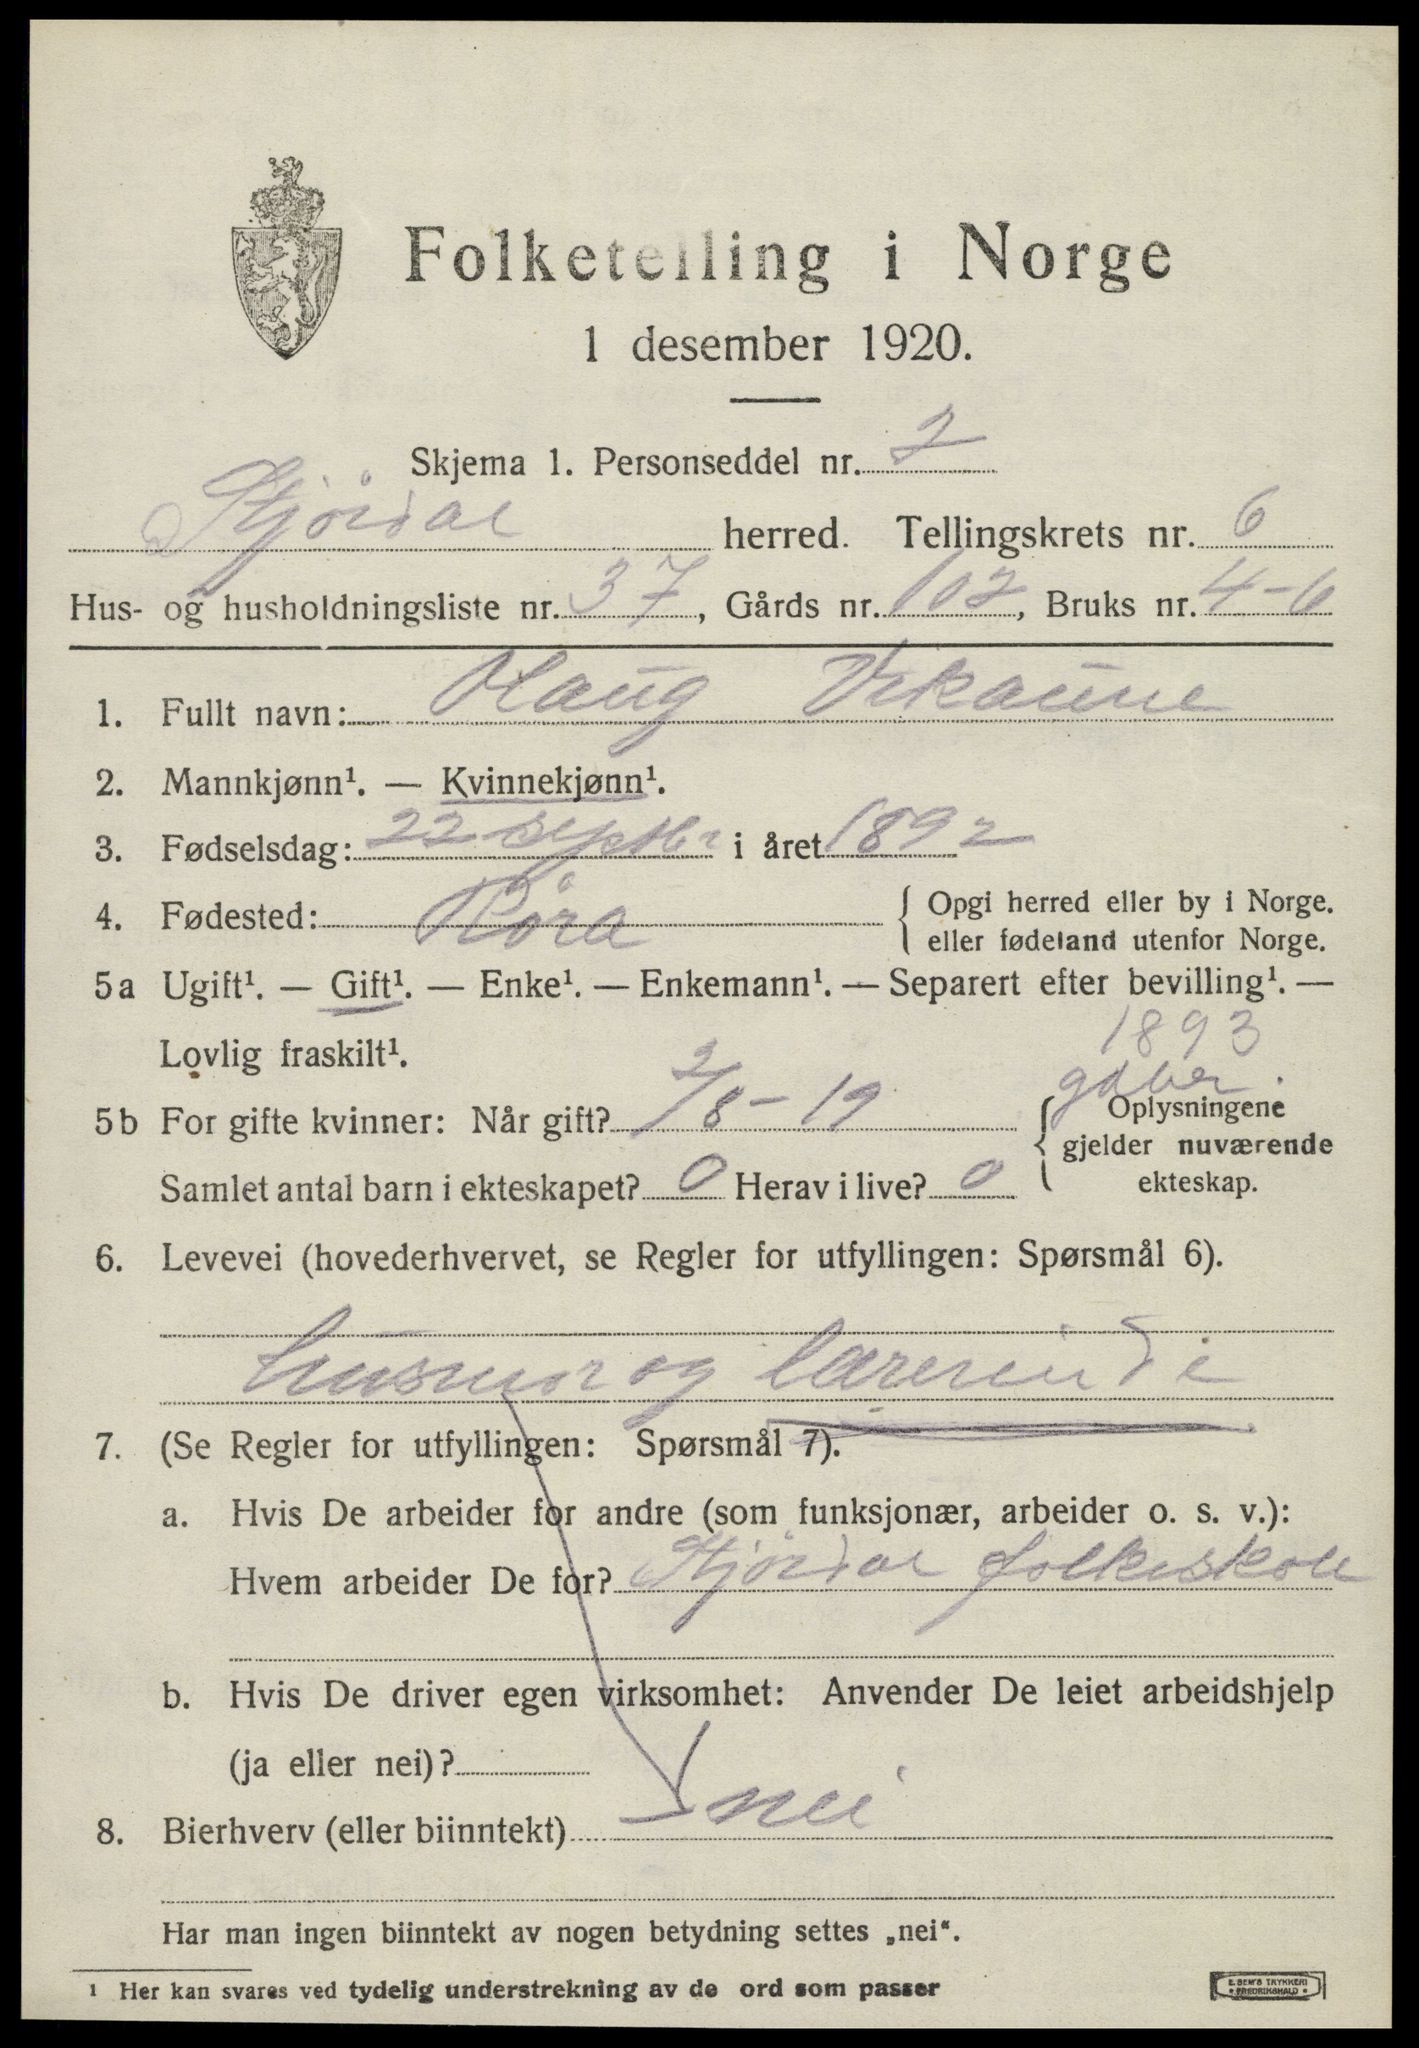 Folketelling i Norge
1 desember 1920.
Skjema 1. Personseddel nr. 2
Stjørdal herred. Tellingskrets nr. 6
Hus- og husholdningsliste nr. 37, Gårds nr. 102, Bruks nr. 4-6
1. Fullt navn: Haug
2. Mannkjønn¹. — Kvinnekjønn¹.
3. Fødselsdag: 22 septbr i året 1892
4. Fødested: Røra { Opgi herred eller by i Norge.
eller fødeland utenfor Norge.
5a Ugift¹. — Gift¹. — Enke¹. — Enkemann¹. — Separert efter bevilling¹. —
Lovlig fraskilt¹.
1893
5b For gifte kvinner: Når gift? 2/8 - 19 { Oplysningene
gjelder nuværende
ekteskap.
Samlet antal barn i ekteskapet? 0 Herav i live? 0
6. Levevei (hovederhvervet, se Regler for utfyllingen: Spørsmål 6).
husmor og lærerinde
7. (Se Regler for utfyllingen: Spørsmål 7).
a. Hvis De arbeider for andre (som funksjonær, arbeider o. s. v.):
Hvem arbeider De for? Stjørdal folkeskole
b. Hvis De driver egen virksomhet: Anvender De leiet arbeidshjelp
(ja eller nei)?
8. Bierhverv (eller biinntekt) nei
Har man ingen biinntekt av nogen betydning settes „nei“.
¹ Her kan svares ved tydelig understrekning av de ord som passer
E. SEM'S TRYKKERI
FREDRIKSHALD